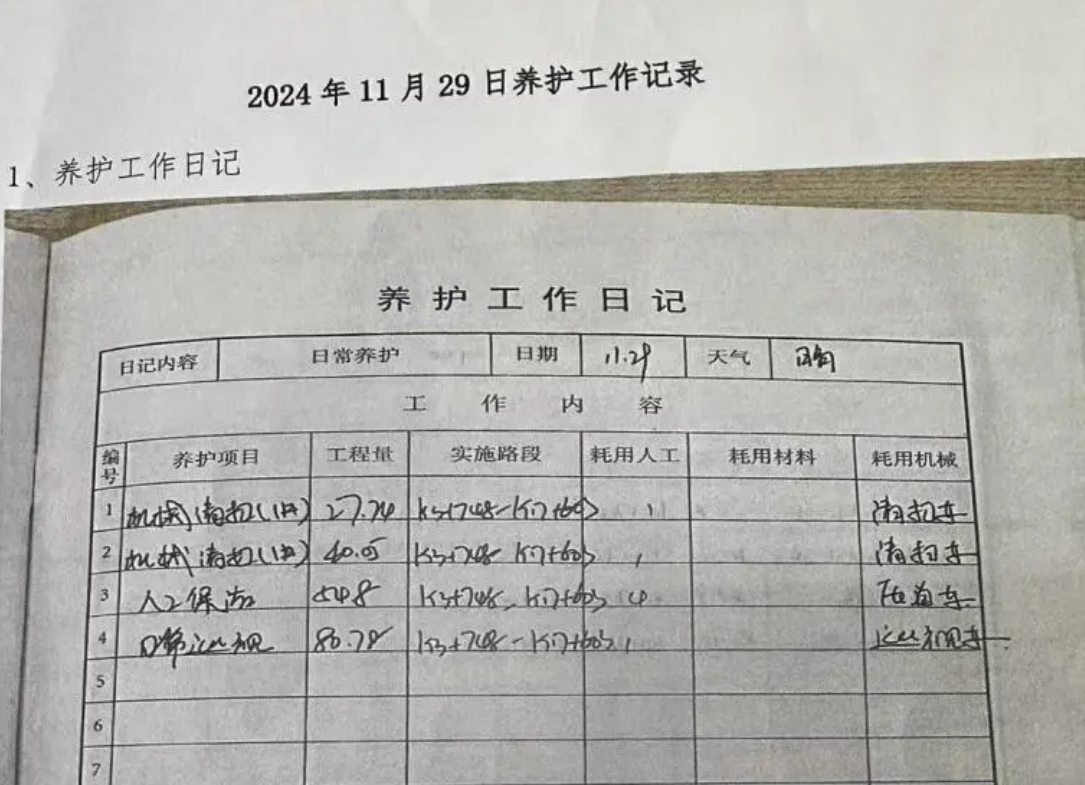 2024 年 11 月 29 日养护工作记录
1、养护工作日记
养护工作日记
日记内容 日常养护 日期 11.29 天气 晴
工作内容
编号 养护项目 工程量 实施路段 耗用人工 耗用材料 耗用机械
1 机械清扫 27.74 K3+748-K17+603 1 清扫车
2 机械清扫 40.05 K3+748 K17+603 1 清扫车
3 人工保洁 548 K3+748-K17+603 4
4 日常巡视 80.78 K3+748-K17+603 1 巡视车
5
6
7